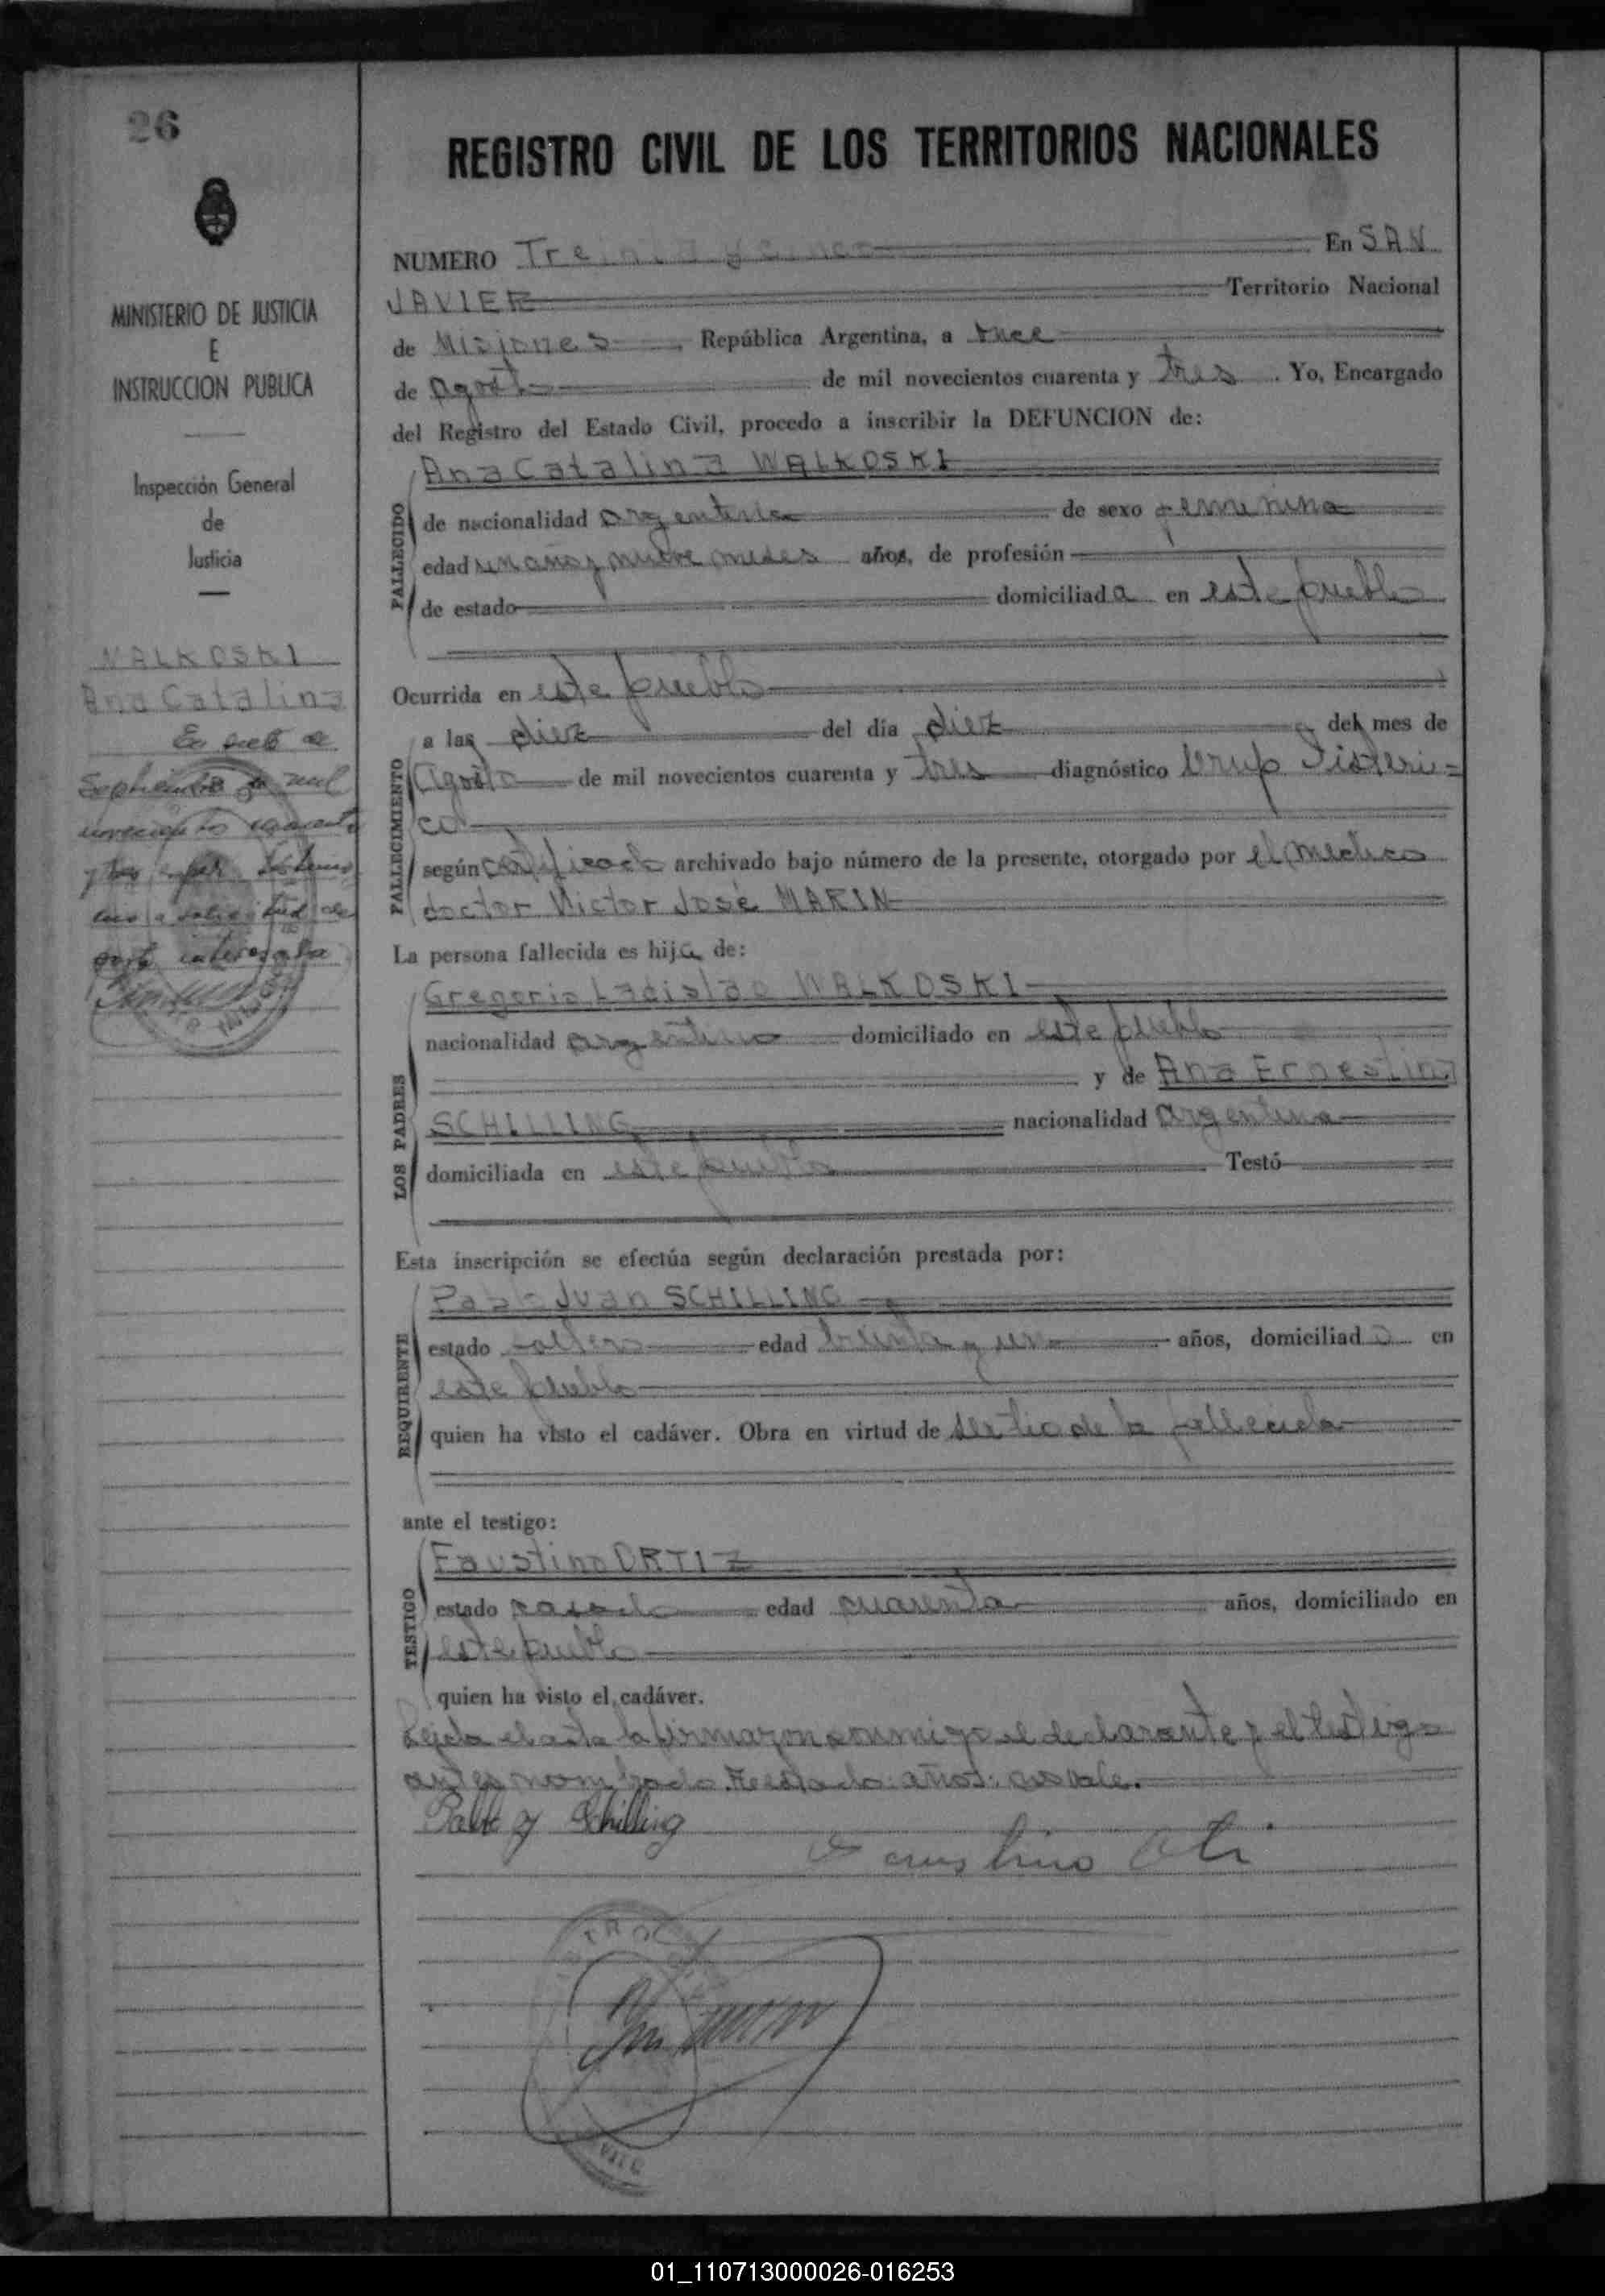 26
REGISTRO CIVIL DE LOS TERRITORIOS NACIONALES
MINISTERIO DE JUSTICIA
E
INSTRUCCION PUBLICA
Inspección General
de
Justicia
WALKOSKI
Ana Catalina
En siete de
Septiembre de mil
novecientos cuarenta
y tres
a solicitud de
parte interesada
NUMERO Treinta y cinco En SAN
JAVIER Territorio Nacional
de Misiones, República Argentina, a once
de Agosto de mil novecientos cuarenta y tres. Yo, Encargado
del Registro del Estado Civil, procedo a inscribir la DEFUNCION de:
Ana Catalina WALKOSKI
FALLECIDO
de nacionalidad argentina de sexo femenino
edad un año y nueve meses años, de profesión
de estado domiciliada en este pueblo
Ocurrida en este pueblo
a las diez del día diez del mes de
FALLECIMIENTO
Agosto de mil novecientos cuarenta y tres diagnóstico Crup Disteri=
co
según certificado archivado bajo número de la presente, otorgado por el médico
doctor Victor José MARIN
La persona fallecida es hija de:
Gregorio Ladislao WALKOSKI
nacionalidad argentino domiciliado en este pueblo
y de Ana Ernestina
LOS PADRES
SCHILLING nacionalidad argentina
domiciliada en este pueblo. Testó
Esta inscripción se efectúa según declaración prestada por:
Pablo Juan SCHILLING
REQUIRENTE
estado soltero edad treinta y un años, domiciliado en
este pueblo
quien ha visto el cadáver. Obra en virtud de ser tio de la fallecida
ante el testigo:
Faustino ORTIZ
TESTIGO
estado casado edad cuarenta años, domiciliado en
este pueblo
quien ha visto el cadáver.
Leida el acta la firmaron conmigo el declarante y el testigo
antes nombrado. Testado: años: no vale.
Pablo J Schilling
Faustino Orti
01_110713000026-016253